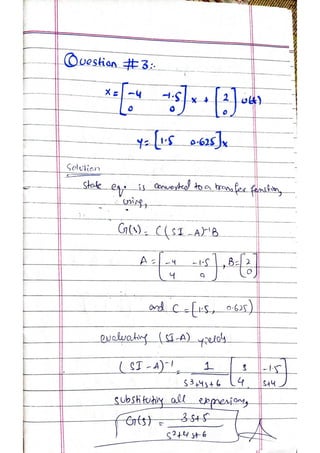 Question #3:-
x = [ -4 -1.5 ] x + [ 2 ] u(t)
[ 0 0 ] [ 0 ]
y = [1.5 0.625]x
Solution
State eq. is converted to a transfer function,
using,
G(s) = C(SI - A)⁻¹B
A = [ -4 -1.5 ] , B = [ 2 ]
[ 4 0 ] [ 0 ]
and C = [1.5, 0.625)
evaluating (SI-A) yields
(SI - A)⁻¹ = 1 / s²+4s+6 [ s -1.5 ]
[ 4 s+4 ]
Substituting all expressions,
G(s) = 3s+5 / s²+4s+6